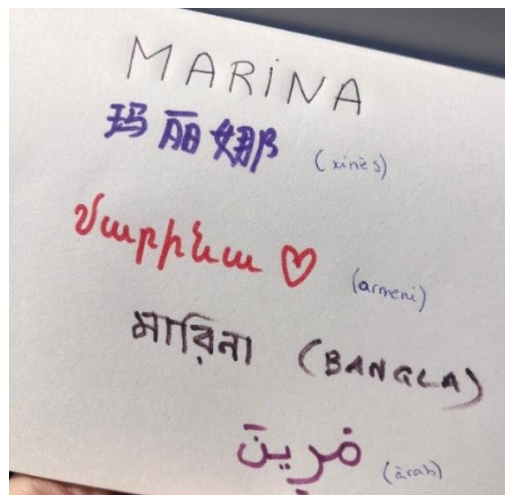 MARiNA
玛丽娜 (xinès)
Մարինա ♡ (armeni)
মারিনা (BANGLA)
مَرين (àrab)